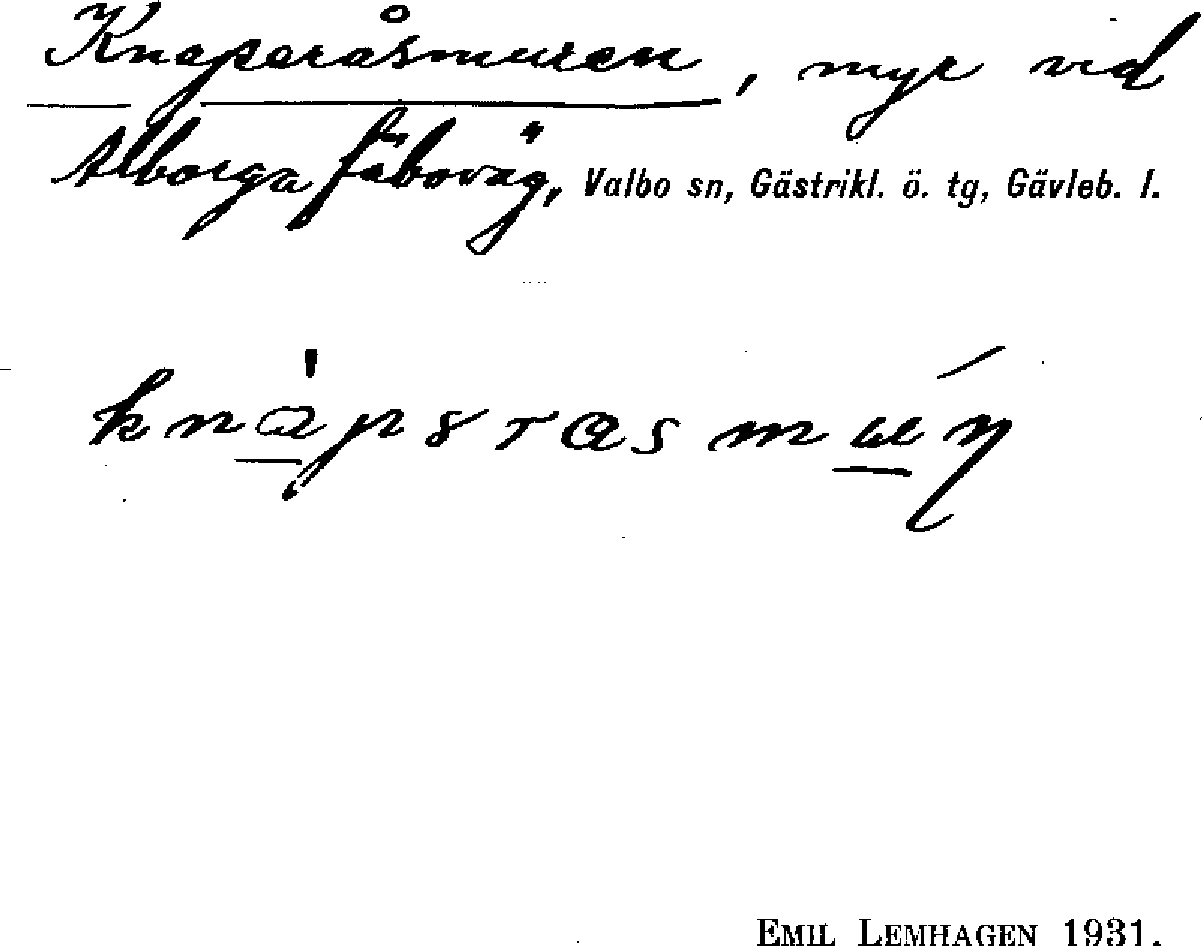 Knaperåsmuren, myr vid
Alborga fäboväg, Valbo sn, Gästrikl. ö. tg, Gävleb. l.
EMIL LEMHAGEN 1931.